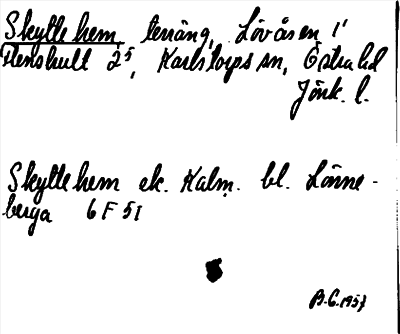 Skyttehem, terräng, Lövåsen 1¹
Flenshult 2⁵, Karlstorps sn, Östra hd
Jönk. l.
Skyttehem ek. Kalm. bl. Lönne-
berga 6 F 5 I
B.G. 1957